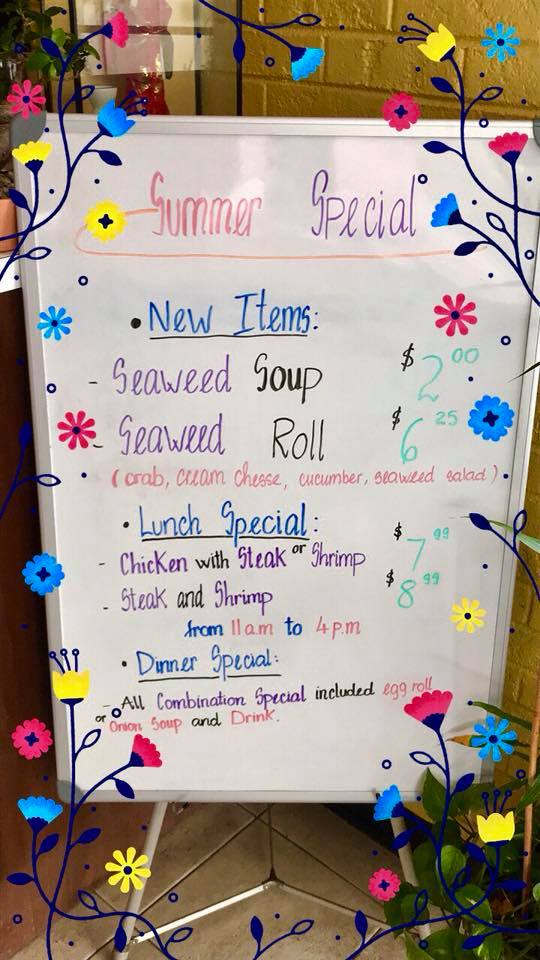 Summer Special
• New Items:
- Seaweed Soup $2.00
- Seaweed Roll $6.25
(crab, cream chesse, cucumber, seaweed salad)
• Lunch Special:
- Chicken with Steak or Shrimp $7.99
- Steak and Shrimp $8.99
from 11am to 4p.m
• Dinner Special:
- All Combination Special included egg roll
or Onion Soup and Drink.